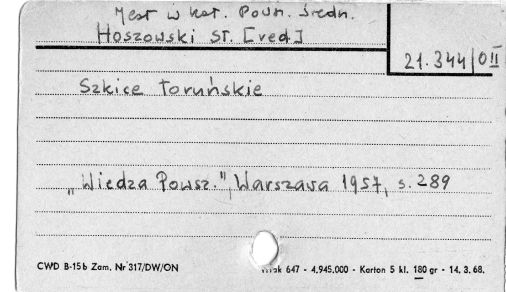 Jest w kat. Powr. Średn.
Hoszowski St. [red]
21.344/OII
Szkice toruńskie
„Wiedza Powsz.", Warszawa 1957, s. 289
CWD B-15b Zam. Nr 317/DW/ON
647 - 4.945.000 - Karton 5 kl. 180 gr - 14.3.68.